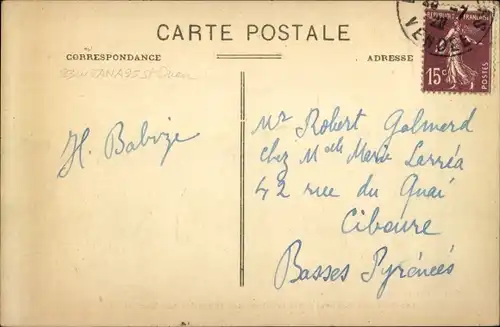 CARTE POSTALE
CORRESPONDANCE
ADRESSE
RÉPUBLIQUE FRANÇAISE
15c
POSTES
VENDÉE
H. Babize
Mr Robert Galmerd
chez Melle Marie Larréa
42 rue du Quai
Ciboure
Basses Pyrénées